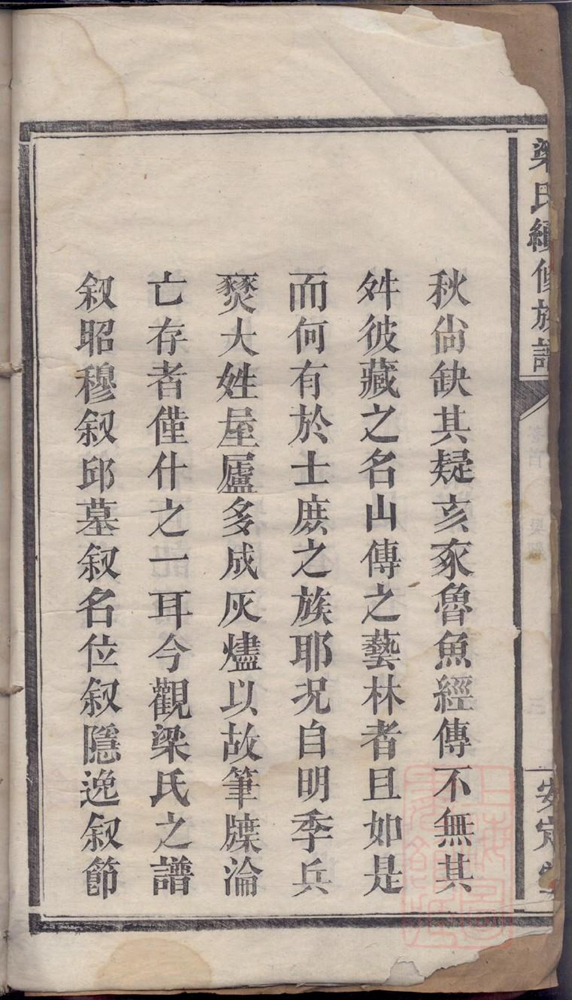 梁氏續修族譜
安定堂
秋尙缺其疑亥豕魯魚經傳不無其
舛彼藏之名山傳之藝林者且如是
而何有於士庶之族耶况自明季兵
燹大姓屋廬多成灰燼以故筆牒淪
亡存者僅什之一耳今觀梁氏之譜
叙昭穆叙邱墓叙名位叙隱逸叙節